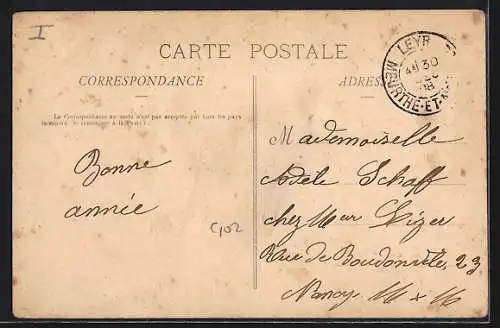 I
CARTE POSTALE
CORRESPONDANCE
ADRES
LEYR
30
08
MEURTHE-ET-M
La Correspondance au verso n'est pas acceptée par tous les pays
(se renseigner à la Poste).
Mademoiselle
Adèle Schaff
chez Mer
Rue de Boudonville, 23
Nancy M & M
Bonne
année
C102